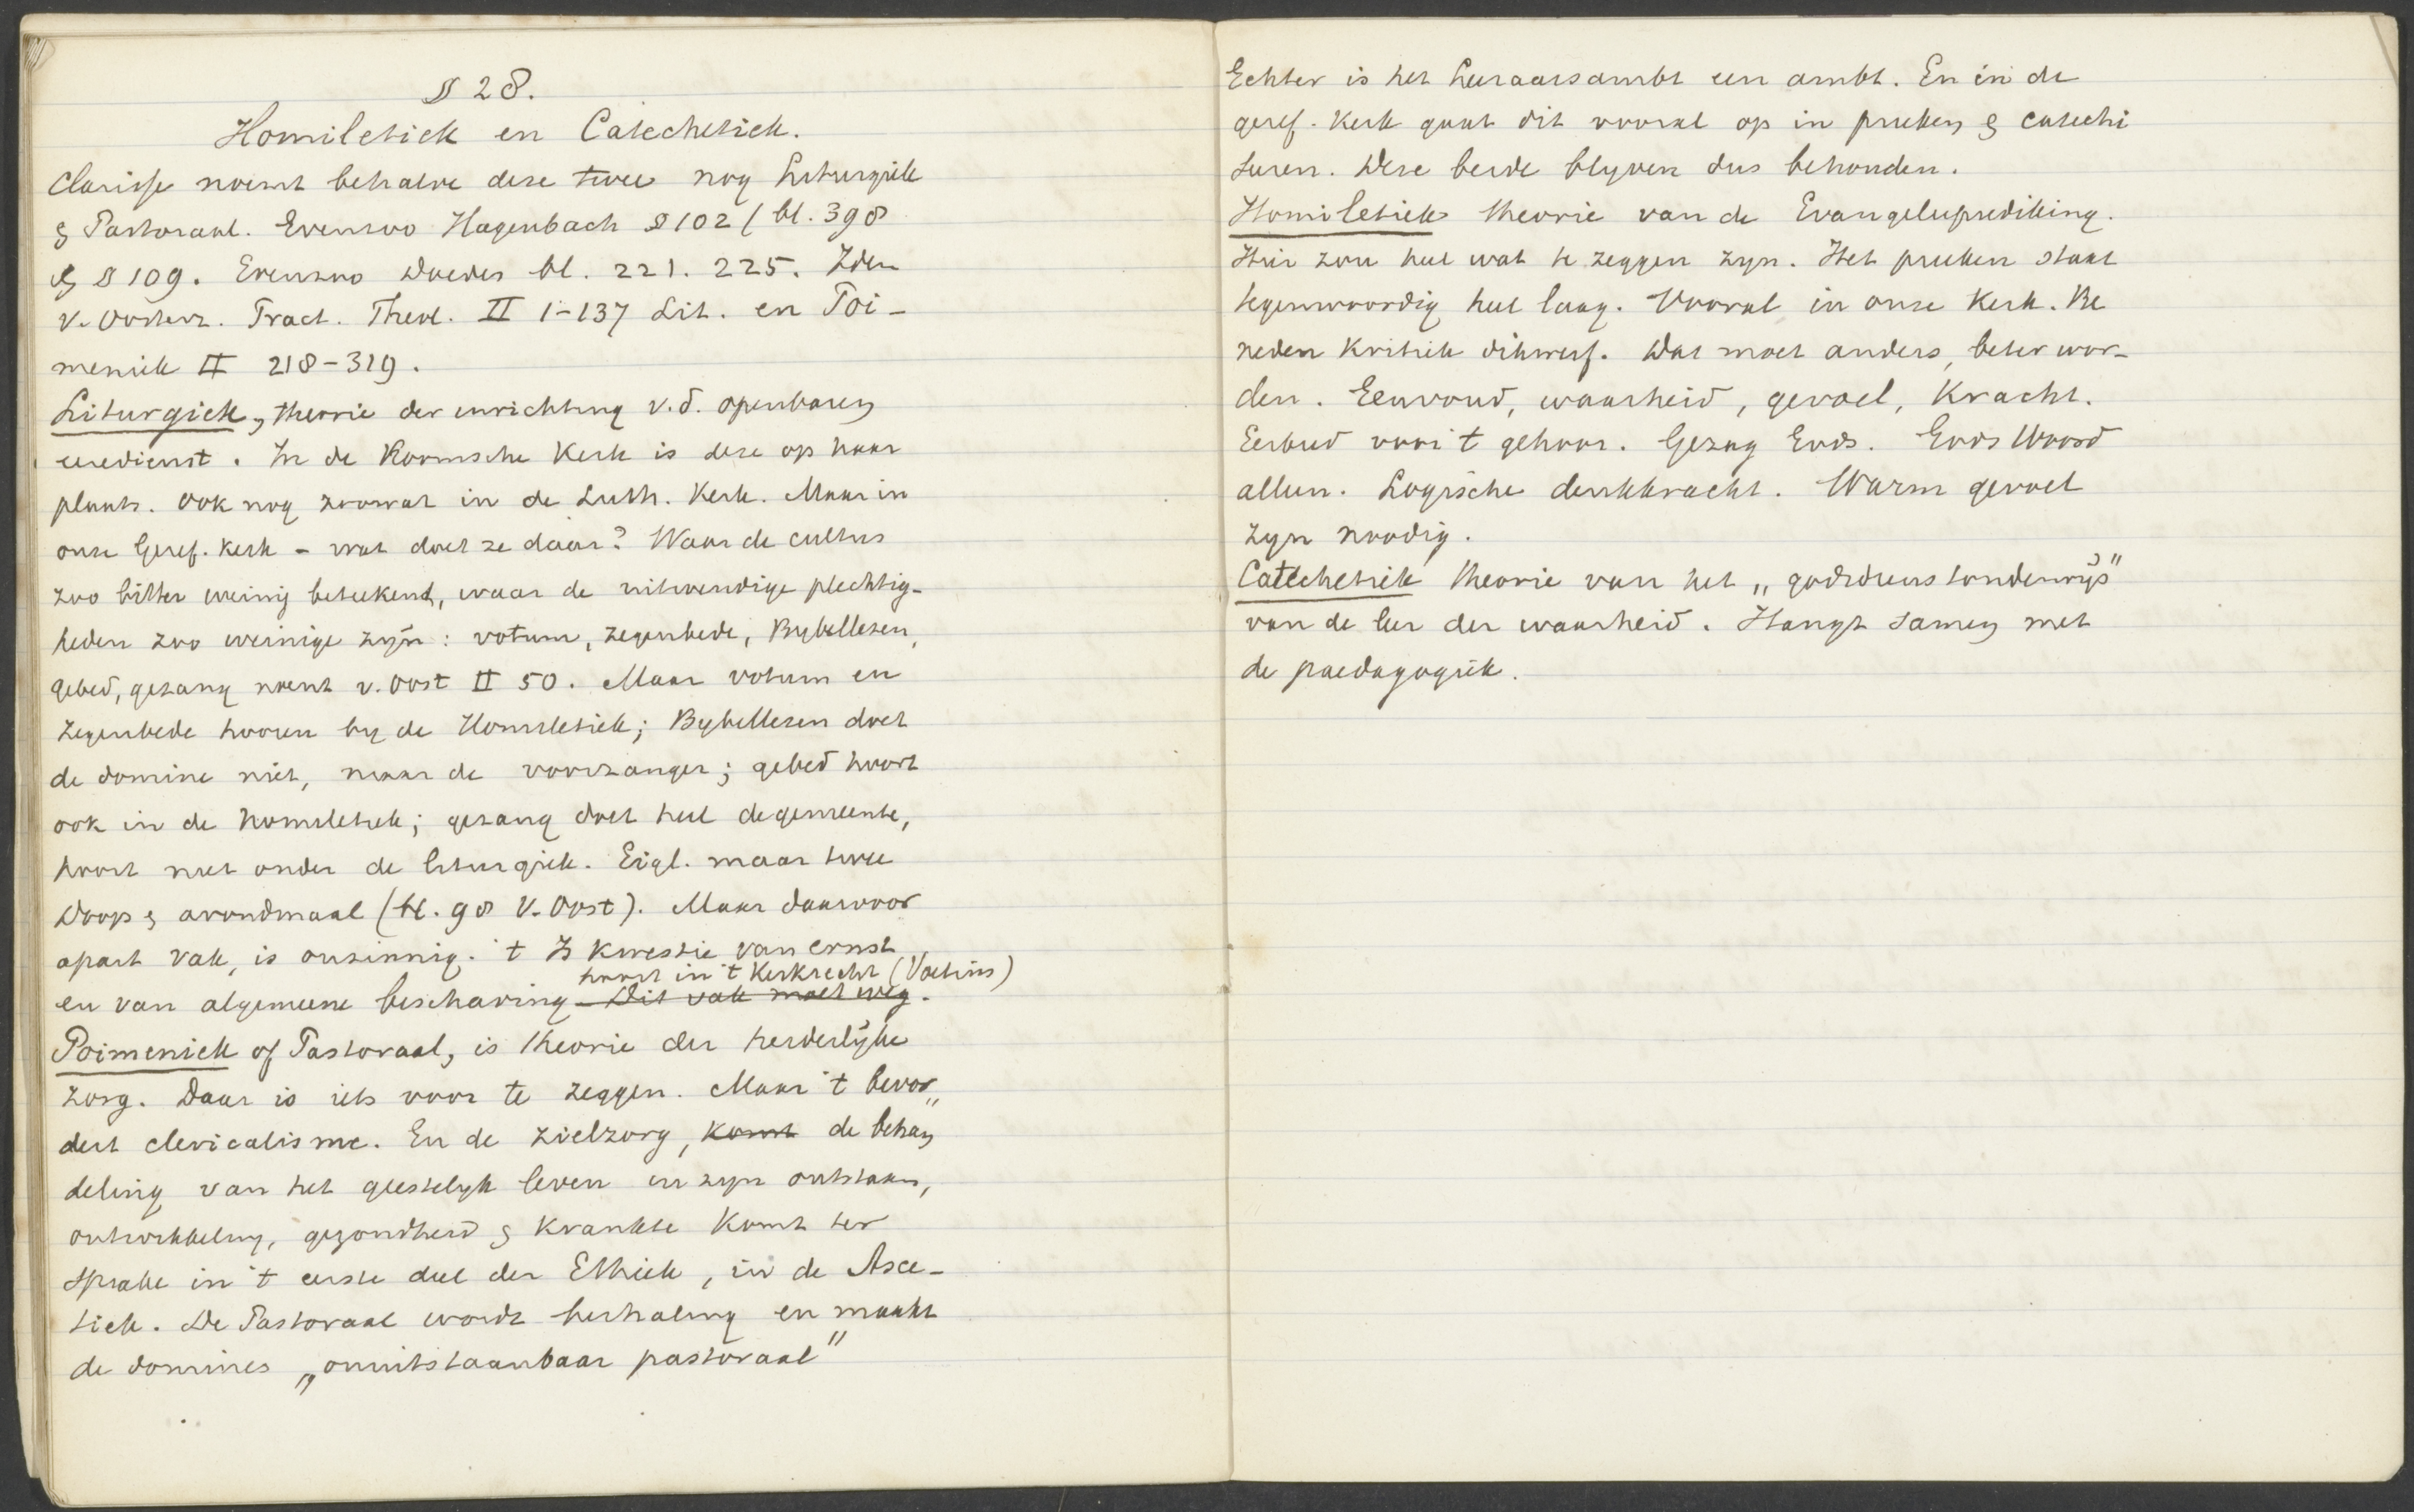 § 28.
Homiletiek en Catechetiek.
Clarisse noemt behalve deze twee nog Liturgiek
& Pastoraal. Evenzoo Hagenbach § 102 / bl. 398
& § 109. Evenzoo Doedes bl. 221. 225. Idem
v. Oosterz. Pract. Theol. II 1-137 Lit. en Poi-
meniek II 218-319.
Liturgiek, theorie der inrichting v.d. openbaren
eeredienst. In de Roomsche Kerk is deze op haar
plaats. Ook nog zoowat in de Luth. Kerk. Maar in
onze Geref. Kerk - wat doet ze daar? Waar de cultus
zoo bitter weinig beteekent, waar de uitwendige plechtig-
heden zoo weinige zijn: votum, zegenbede, Bybellezen,
gebed, gezang noemt v. Oost II 50. Maar votum en
zegenbede hooren by de Homiletiek; Bybellezen doet
de domine niet, maar de voorzanger; gebed hoort
ook in de homiletiek; gezang doet heel de gemeente,
hoort niet onder de liturgiek. Eigl. maar twee
Doop & avondmaal (bl. 98 v. Oost). Maar daarvoor
apart vak, is onzinnig. 't Is kwestie van ernst
hoort in 't Kerkrecht (Voetius)
en van algemeene beschaving - Dit vak moet weg.
Poimeniek of Pastoraal, is theorie der herderlijke
zorg. Daar is iets voor te zeggen. Maar 't bevor„
dert clericalisme. En de zielzorg, komt de behan
deling van het geestelyk leven in zyn ontstaan,
ontwikkeling, gezondheid & krankte komt ter
sprake in 't eerste deel der Ethiek, in de Asce-
tiek. De Pastoraal wordt herhaling en maakt
de domines „onuitstaanbaar pastoraal"
Echter is het Leeraarsambt een ambt. En in de
geref. Kerk gaat dit vooral op in preken & catechi
seren. Deze beide blyven dus behouden.
Homiletiek theorie van de Evangelieprediking.
Hier zou heel wat te zeggen zyn. Het preken staat
tegenwoordig heel laag. Vooral in onze Kerk. Be
neden kritiek dikwerf. Dat moet anders, beter wor-
den. Eenvoud, waarheid, gevoel, kracht.
Eerbied voor 't gehoor. Gezag Gods. Gods Woord
alleen. Logische denkkracht. Warm gevoel
zyn noodig.
Catechetiek theorie van het „godsdienstonderwijs"
van de leer der waarheid. Hangt samen met
de paedagogiek.